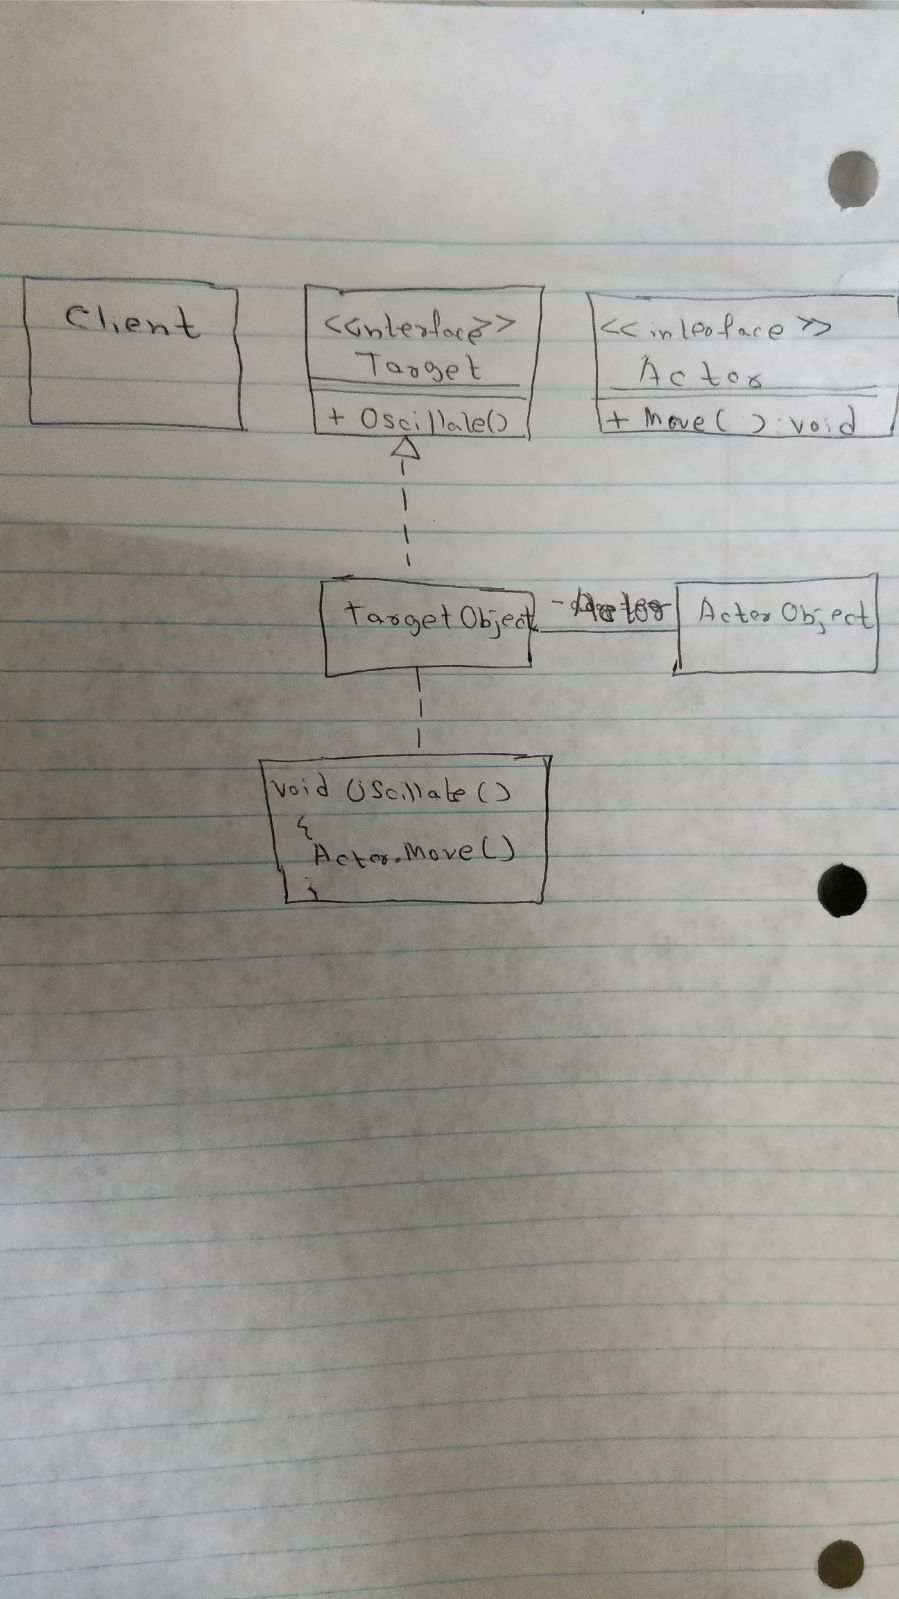 Client
<<interface>>
Target
+ Oscillate()
<<interface>>
Actor
+ Move( ) : void
TargetObject
- Actor
ActorObject
void Oscillate ()
{
Actor.Move()
}